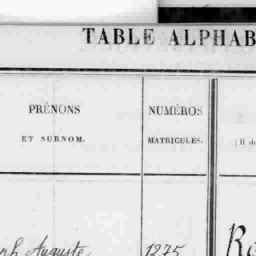 TABLE ALPHAB
PRÉNOMS
ET SURNOM.
NUMÉROS
MATRICULES.
Auguste
1275